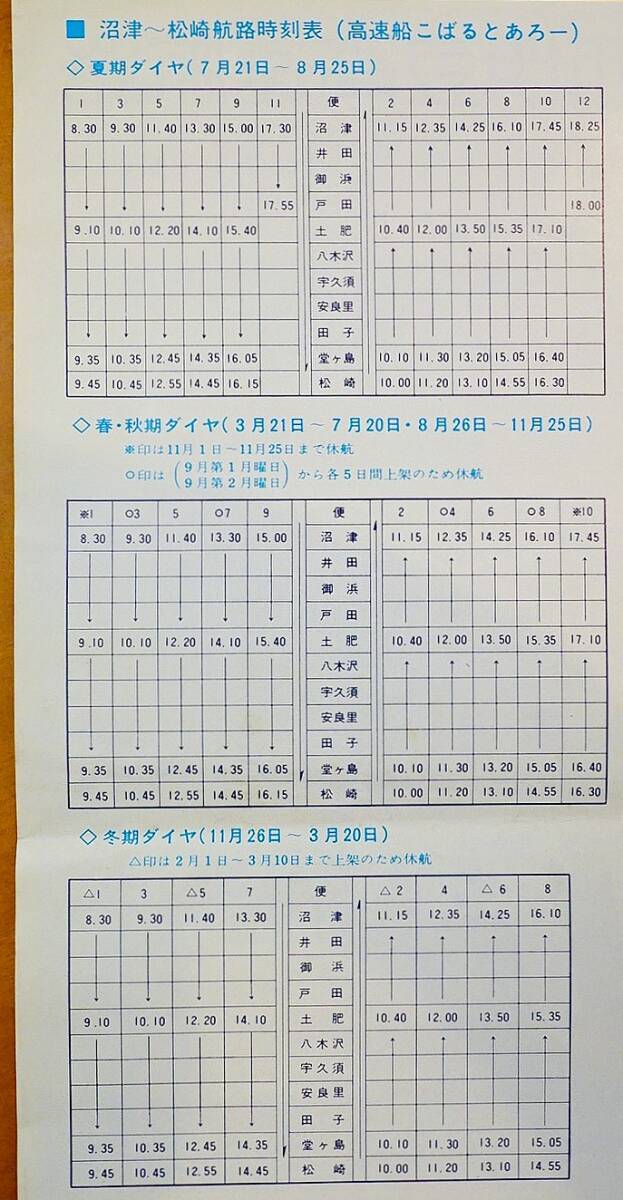 ■ 沼津～松崎航路時刻表（高速船こばるとあろー）
◇夏期ダイヤ(7月21日～8月25日)
1 3 5 7 9 11 便 2 4 6 8 10 12
8.30 9.30 11.40 13.30 15.00 17.30 沼津 11.15 12.35 14.25 16.10 17.45 18.25
井田
御浜
17.55 戸田 18.00
9.10 10.10 12.20 14.10 15.40 土肥 10.40 12.00 13.50 15.35 17.10
八木沢
宇久須
安良里
田子
9.35 10.35 12.45 14.35 16.05 堂ヶ島 10.10 11.30 13.20 15.05 16.40
9.45 10.45 12.55 14.45 16.15 松崎 10.00 11.20 13.10 14.55 16.30
◇春・秋期ダイヤ(3月21日～7月20日・8月26日～11月25日)
※印は11月1日～11月25日まで休航
○印は(9月第1月曜日
9月第2月曜日)から各5日間上架のため休航
※1 ○3 5 ○7 9 便 2 ○4 6 ○8 ※10
8.30 9.30 11.40 13.30 15.00 沼津 11.15 12.35 14.25 16.10 17.45
井田
御浜
戸田
9.10 10.10 12.20 14.10 15.40 土肥 10.40 12.00 13.50 15.35 17.10
八木沢
宇久須
安良里
田子
9.35 10.35 12.45 14.35 16.05 堂ヶ島 10.10 11.30 13.20 15.05 16.40
9.45 10.45 12.55 14.45 16.15 松崎 10.00 11.20 13.10 14.55 16.30
◇冬期ダイヤ(11月26日～3月20日)
△印は2月1日～3月10日まで上架のため休航
△1 3 △5 7 便 △2 4 △6 8
8.30 9.30 11.40 13.30 沼津 11.15 12.35 14.25 16.10
井田
御浜
戸田
9.10 10.10 12.20 14.10 土肥 10.40 12.00 13.50 15.35
八木沢
宇久須
安良里
田子
9.35 10.35 12.45 14.35 堂ヶ島 10.10 11.30 13.20 15.05
9.45 10.45 12.55 14.45 松崎 10.00 11.20 13.10 14.55